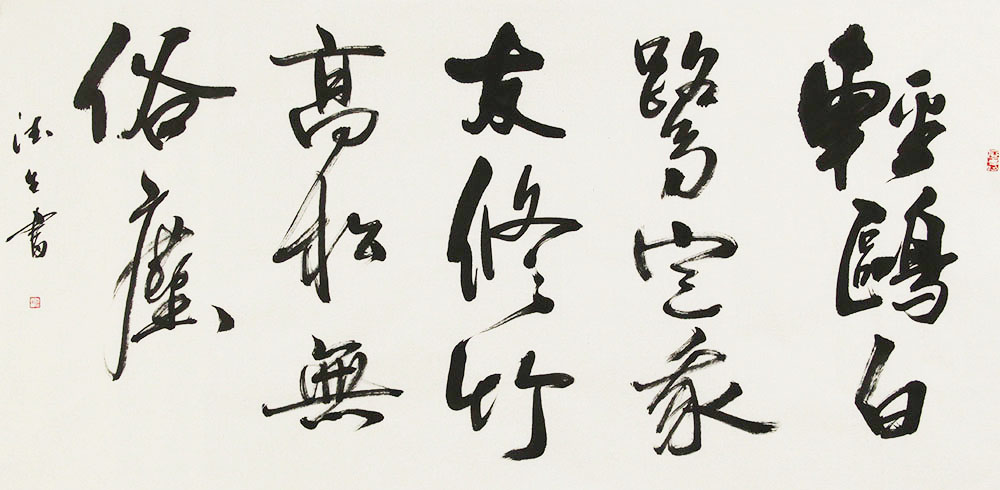 輕鷗白
鷺定我
友修竹
高松無
俗塵
書